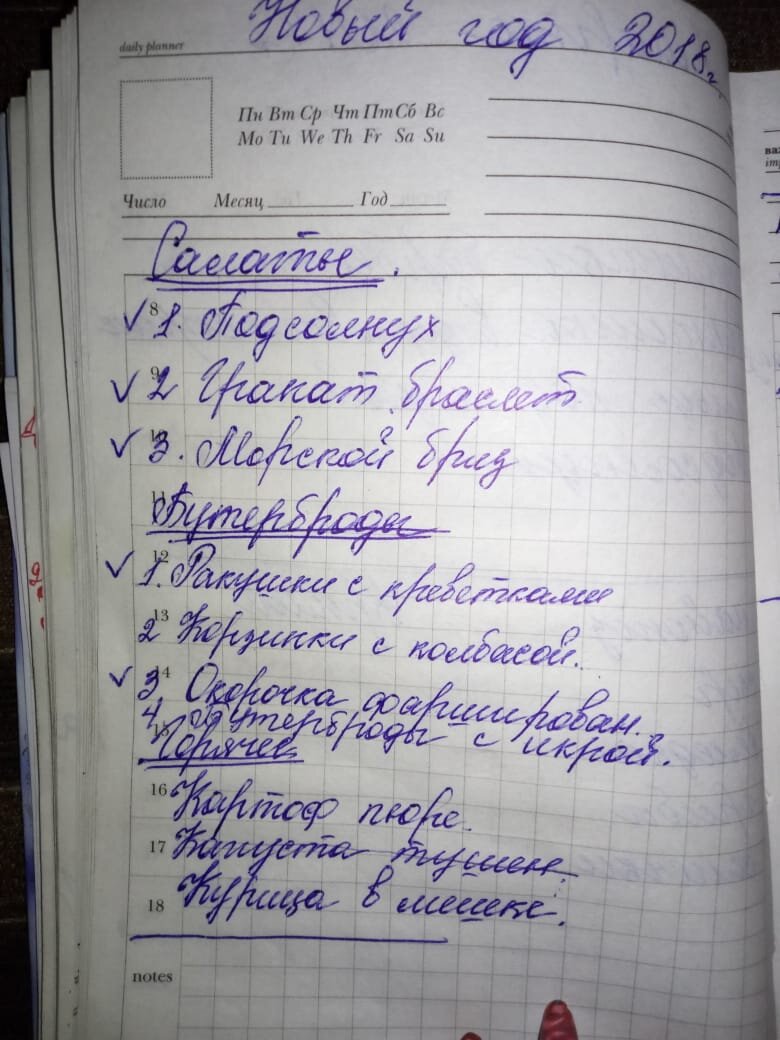 Новый год 2018г.
daily planner
Пн Вт Ср Чт Пт Сб Вс
Mo Tu We Th Fr Sa Su
Число Месяц Год
Салаты.
8 ✓ 1. Подсолнух
9 ✓ 2 Гранат. браслет
10 ✓ 3. Морской бриз
11 Бутерброды
12 ✓ 1. Ракушки с креветками
13 2 Корзинки с колбасой.
14 ✓ 3. Окорочка фарширован.
4. Бутерброды с икрой.
15 Горячее
16 Картоф пюре.
17 Капуста тушен
18 Курица в мешке.
notes